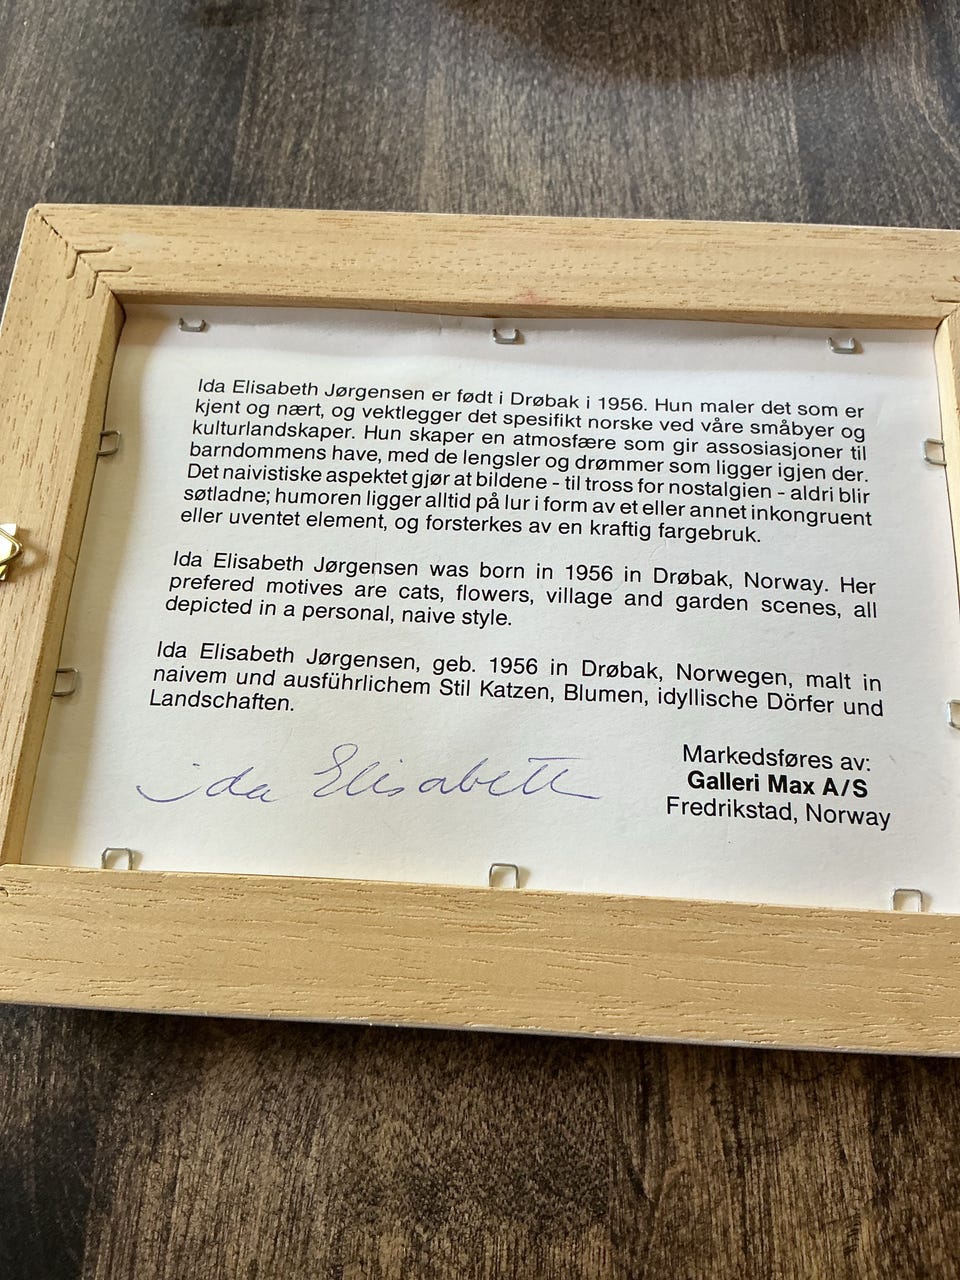 Ida Elisabeth Jørgensen er født i Drøbak i 1956. Hun maler det som er
kjent og nært, og vektlegger det spesifikt norske ved våre småbyer og
kulturlandskaper. Hun skaper en atmosfære som gir assosiasjoner til
barndommens have, med de lengsler og drømmer som ligger igjen der.
Det naivistiske aspektet gjør at bildene - til tross for nostalgien - aldri blir
søtladne; humoren ligger alltid på lur i form av et eller annet inkongruent
eller uventet element, og forsterkes av en kraftig fargebruk.
Ida Elisabeth Jørgensen was born in 1956 in Drøbak, Norway. Her
prefered motives are cats, flowers, village and garden scenes, all
depicted in a personal, naive style.
Ida Elisabeth Jørgensen, geb. 1956 in Drøbak, Norwegen, malt in
naivem und ausführlichem Stil Katzen, Blumen, idyllische Dörfer und
Landschaften.
Ida Elisabeth
Markedsføres av:
Galleri Max A/S
Fredrikstad, Norway